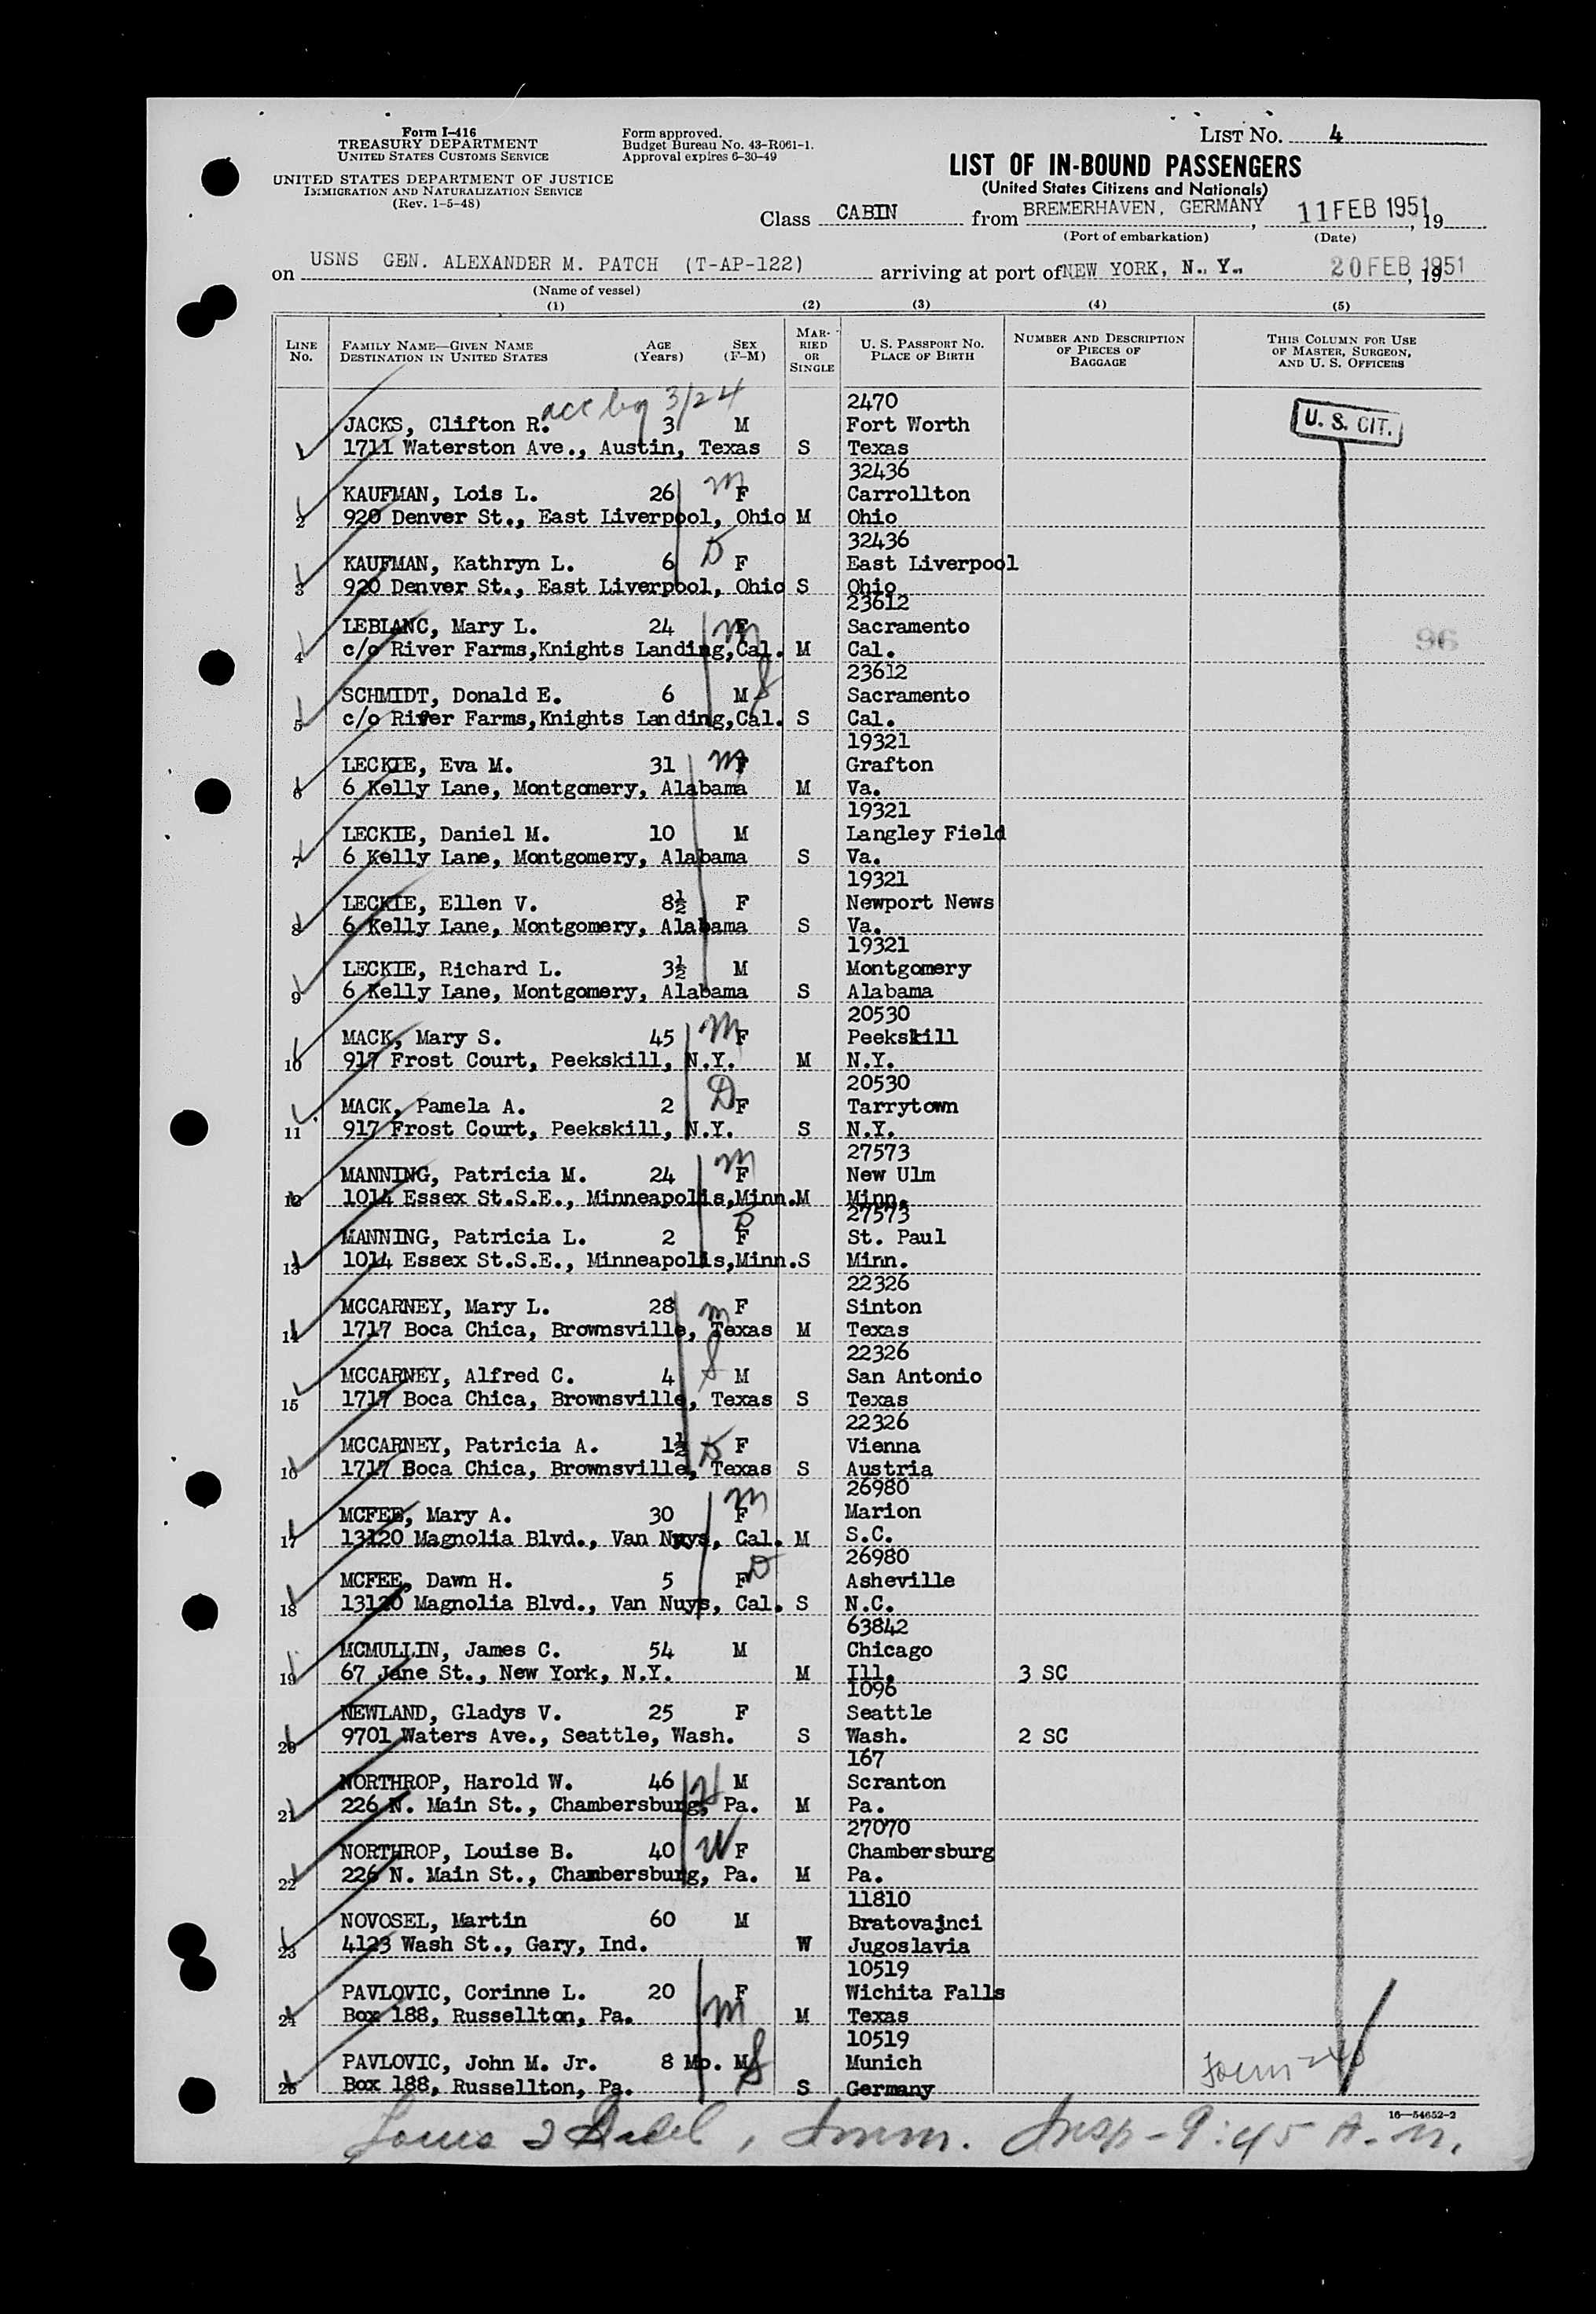 Form I-416
TREASURY DEPARTMENT
UNITED STATES CUSTOMS SERVICE
UNITED STATES DEPARTMENT OF JUSTICE
IMMIGRATION AND NATURALIZATION SERVICE
(Rev. 1-5-48)
Form approved.
Budget Bureau No. 43-R061-1.
Approval expires 6-30-49
LIST No. 4
LIST OF IN-BOUND PASSENGERS
(United States Citizens and Nationals)
Class CABIN from BREMERHAVEN, GERMANY, 11 FEB 1951, 19
(Port of embarkation) (Date)
on USNS GEN. ALEXANDER M. PATCH (T-AP-122) arriving at port of NEW YORK, N. Y., 20 FEB 1951, 19
(Name of vessel)
(1) (2) (3) (4) (5)
LINE No. FAMILY NAME—GIVEN NAME DESTINATION IN UNITED STATES AGE (Years) SEX (F-M) MARRIED OR SINGLE U. S. PASSPORT NO. PLACE OF BIRTH NUMBER AND DESCRIPTION OF PIECES OF BAGGAGE THIS COLUMN FOR USE OF MASTER, SURGEON, AND U. S. OFFICERS
3/24 2470
JACKS, Clifton R. 3 M Fort Worth U. S. CIT.
1 1711 Waterston Ave., Austin, Texas S Texas
32436
KAUFMAN, Lois L. 26 m F Carrollton
2 920 Denver St., East Liverpool, Ohio M Ohio
32436
KAUFMAN, Kathryn L. 6 D F East Liverpool
3 920 Denver St., East Liverpool, Ohio S Ohio
23612
LEBLANC, Mary L. 24 m F Sacramento
4 c/o River Farms,Knights Landing,Cal. M Cal. 96
23612
SCHMIDT, Donald E. 6 M S Sacramento
5 c/o River Farms,Knights Landing,Cal. S Cal.
19321
LECKIE, Eva M. 31 m F Grafton
6 6 Kelly Lane, Montgomery, Alabama M Va.
19321
LECKIE, Daniel M. 10 M Langley Field
7 6 Kelly Lane, Montgomery, Alabama S Va.
19321
LECKIE, Ellen V. 8½ F Newport News
8 6 Kelly Lane, Montgomery, Alabama S Va.
19321
LECKIE, Richard L. 3½ M Montgomery
9 6 Kelly Lane, Montgomery, Alabama S Alabama
20530
MACK, Mary S. 45 m F Peekskill
10 917 Frost Court, Peekskill, N.Y. M N.Y.
20530
MACK, Pamela A. 2 D F Tarrytown
11 917 Frost Court, Peekskill, N.Y. S N.Y.
27573
MANNING, Patricia M. 24 m F New Ulm
12 1014 Essex St.S.E., Minneapolis,Minn. M Minn.
27573
MANNING, Patricia L. 2 D F St. Paul
13 1014 Essex St.S.E., Minneapolis,Minn. S Minn.
22326
MCCARNEY, Mary L. 28 m F Sinton
14 1717 Boca Chica, Brownsville, Texas M Texas
22326
MCCARNEY, Alfred C. 4 S M San Antonio
15 1717 Boca Chica, Brownsville, Texas S Texas
22326
MCCARNEY, Patricia A. 1½ D F Vienna
16 1717 Boca Chica, Brownsville, Texas S Austria
26980
MCFEE, Mary A. 30 m F Marion
17 13120 Magnolia Blvd., Van Nuys, Cal. M S.C.
26980
MCFEE, Dawn H. 5 F D Asheville
18 13120 Magnolia Blvd., Van Nuys, Cal. S N.C.
63842
MCMULLIN, James C. 54 M Chicago
19 67 Jane St., New York, N.Y. M Ill. 3 SC
1096
NEWLAND, Gladys V. 25 F Seattle
20 9701 Waters Ave., Seattle, Wash. S Wash. 2 SC
167
NORTHROP, Harold W. 46 H M Scranton
21 226 N. Main St., Chambersburg, Pa. M Pa.
27070
NORTHROP, Louise B. 40 W F Chambersburg
22 226 N. Main St., Chambersburg, Pa. M Pa.
11810
NOVOSEL, Martin 60 M Bratovajnci
23 4123 Wash St., Gary, Ind. W Jugoslavia
10519
PAVLOVIC, Corinne L. 20 F Wichita Falls
24 Box 188, Russellton, Pa. m M Texas
10519
PAVLOVIC, John M. Jr. 8 Mo. M S Munich
25 Box 188, Russellton, Pa. S Germany
16—54652-2
Imm. Insp - 9:45 A. m.